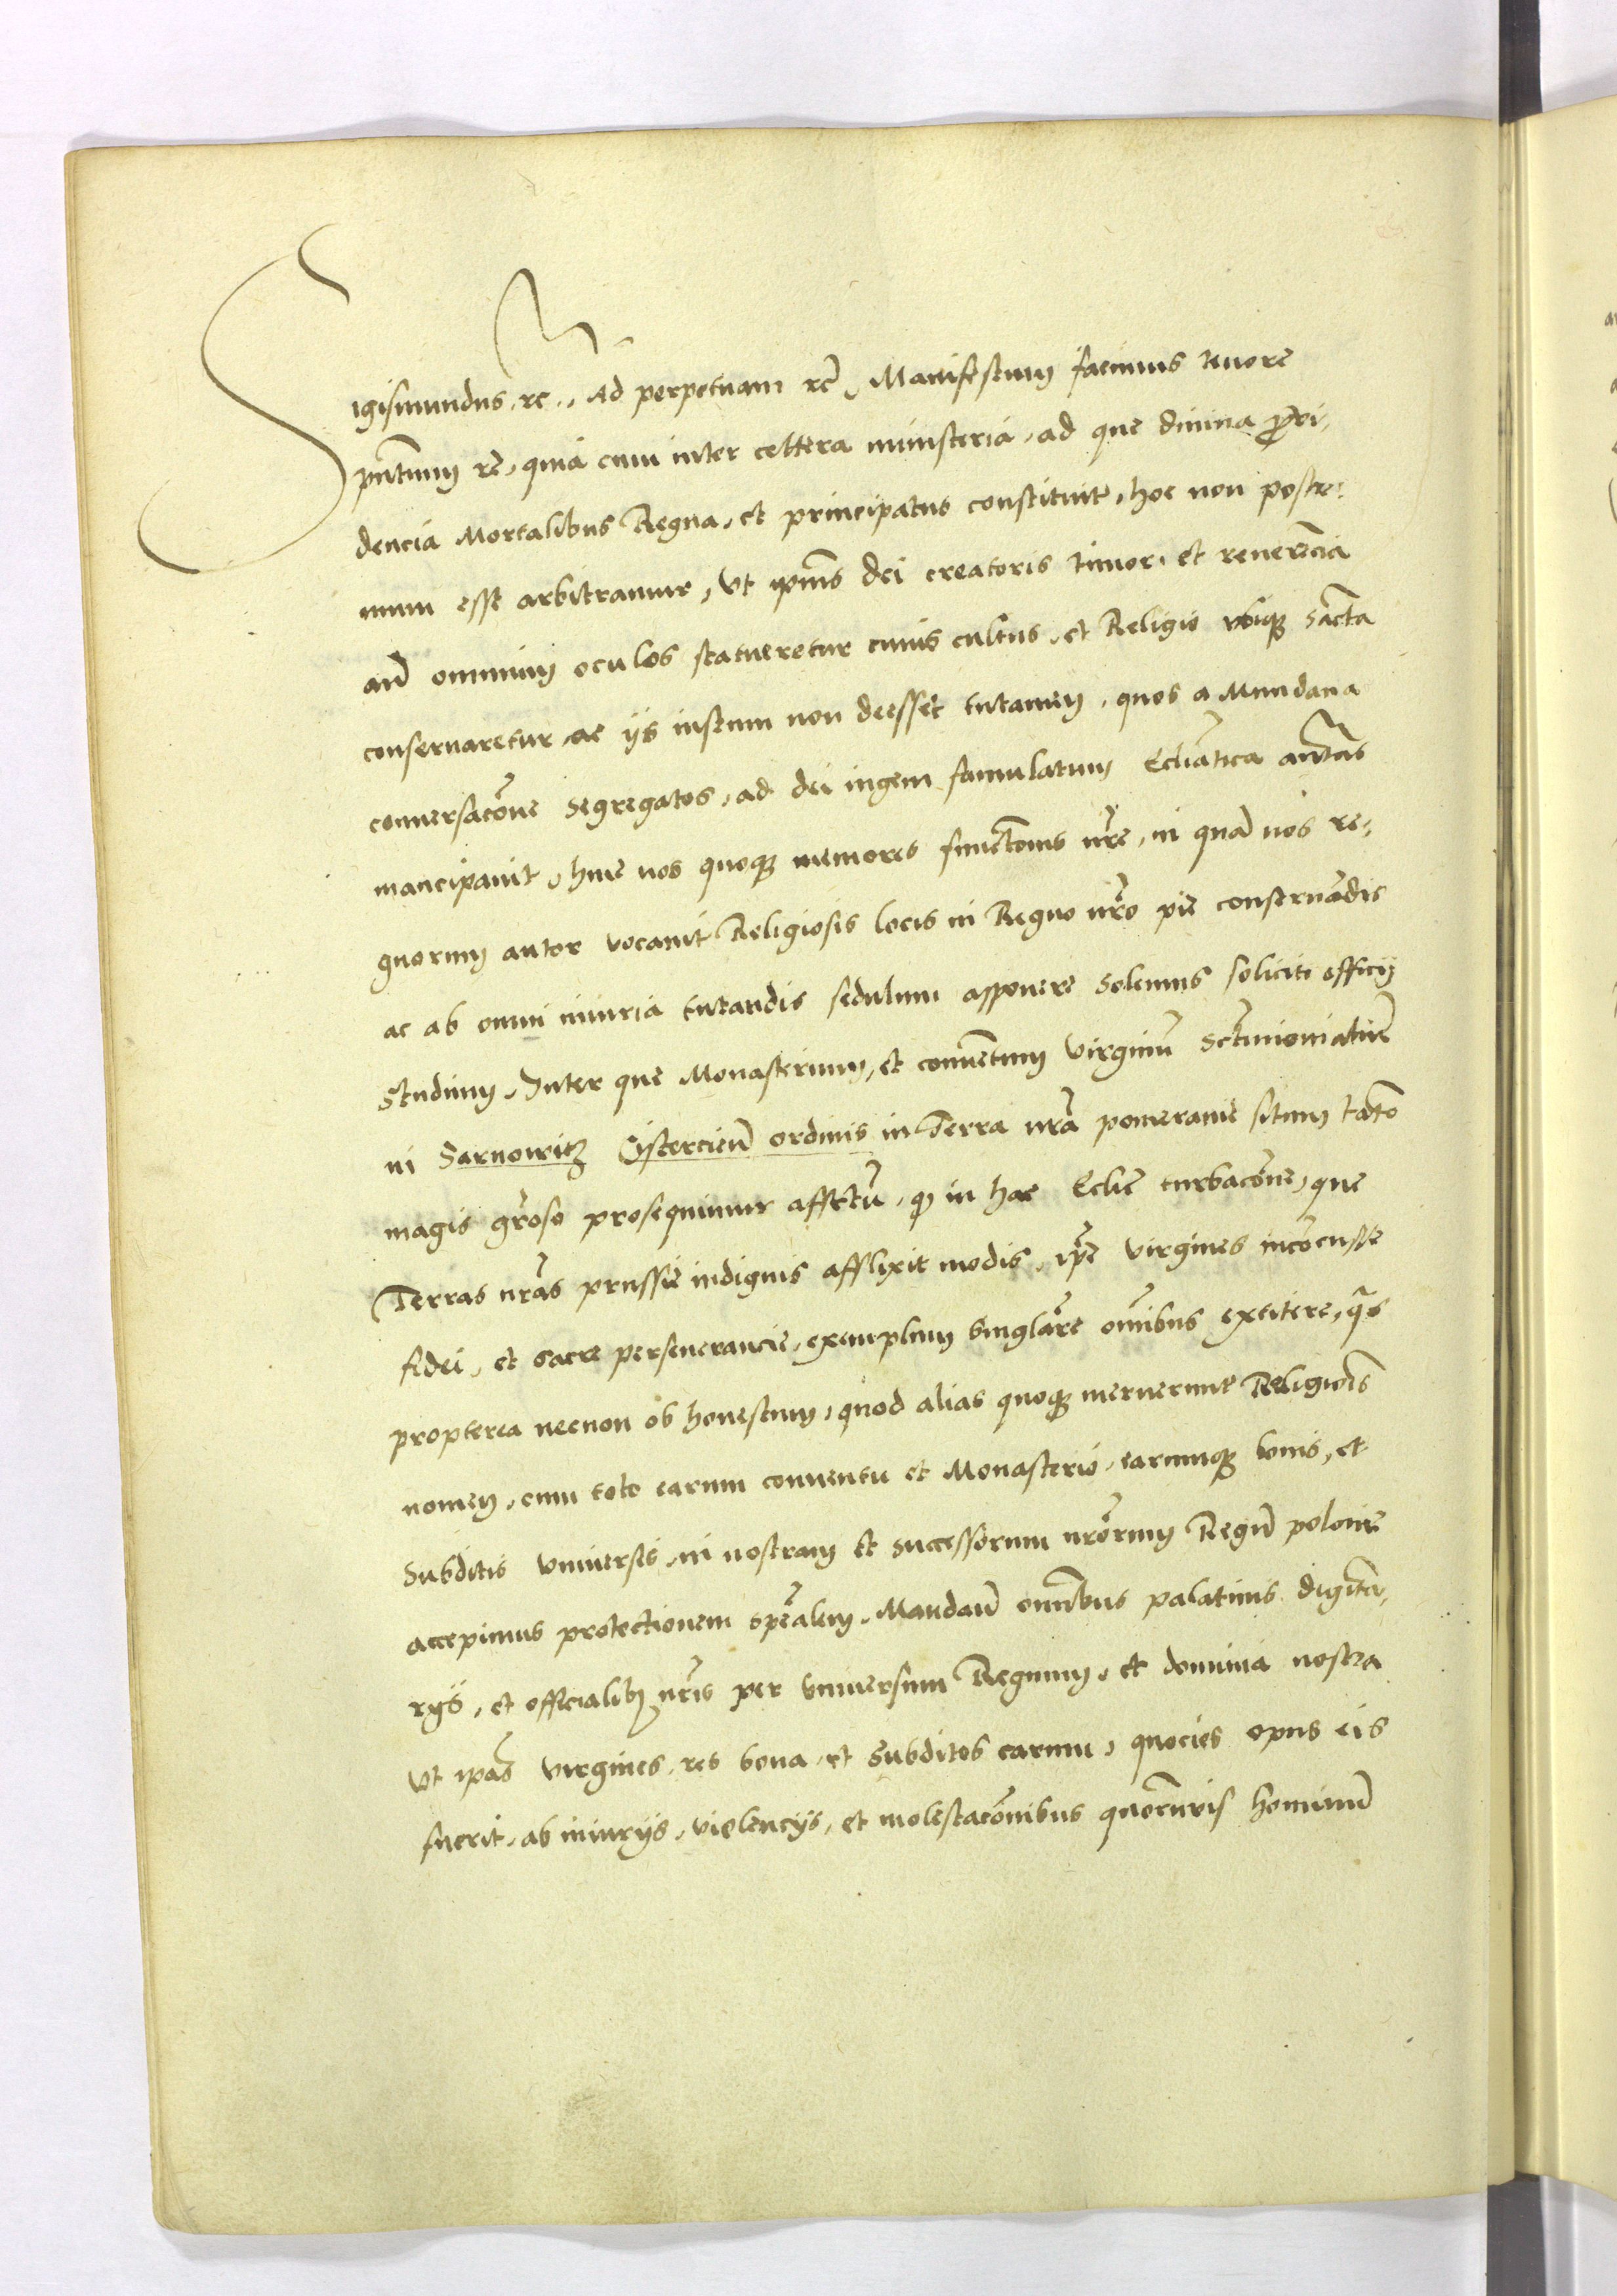 Sigismundus, rc., Ad perpetuam rc̃, Manifestum facimus tenore
pñtium rc, quia cum inter cettera ministeria, ad que diuina p̃ui-
dencia Mortalibus Regna, et principatus constituit, hoc non postre-
mum esse arbitramur, Vt ipsius dei creatoris timor, et reuerẽcia
añ omnium oculos statueretur cuius cultus, et Religio vbiqꝫ sãcta
conseruaretur, ac ijs iustum non deesset tutamen, quos a Mundana
conuersacõne segregatos, ad dei iugem famulatum Eccliãtica auctãs
mancipauit, hinc nos quoqꝫ memores functõnis nr̃e, in quã nos re-
gnorum autor vocauit Religiosis locis in Regno nr̃o pie conseruãdis
ac ab omni iniuria tutandis sedulum apponere solemus soliciti officij
studium, Inter que Monasterium, et conuẽtum Virginũ Sctimonialiũ
in Sarnowitz Cistercieñ ordinis in Terra nr̃a pomeranie situm tãto
magis gr̃oso prosequimur affectũ, qͦ in hac Ecclie turbacõne, que
Terras nr̃as prussie indignis afflixit modis, ip̃e virgines incõcusse
fidei, et sacre perseuerancie, exemplum singlãre om̃ibus extitere, q̃s
propterea necnon ob honestum, quod alias quoqꝫ meruerunt Religiõis
nomen, cum toto earum conuentu et Monasterio, earumqꝫ bonis, et
subditis vniuersis, in nostram et successorum nr̃orum Regũ polonie
accepimus protectionem sp̃ealem, Mandañ om̃ibus palatinis dignita-
rijs, et officialibꝫ nr̃is per vniuersum Regnum, et dominia nostra
Vt ip̃as virgines, res bona, et Subditos earum, quocies opus eis
fuerit, ab iniurijs, violencijs, et molestacõnibus quorũuis hominũ